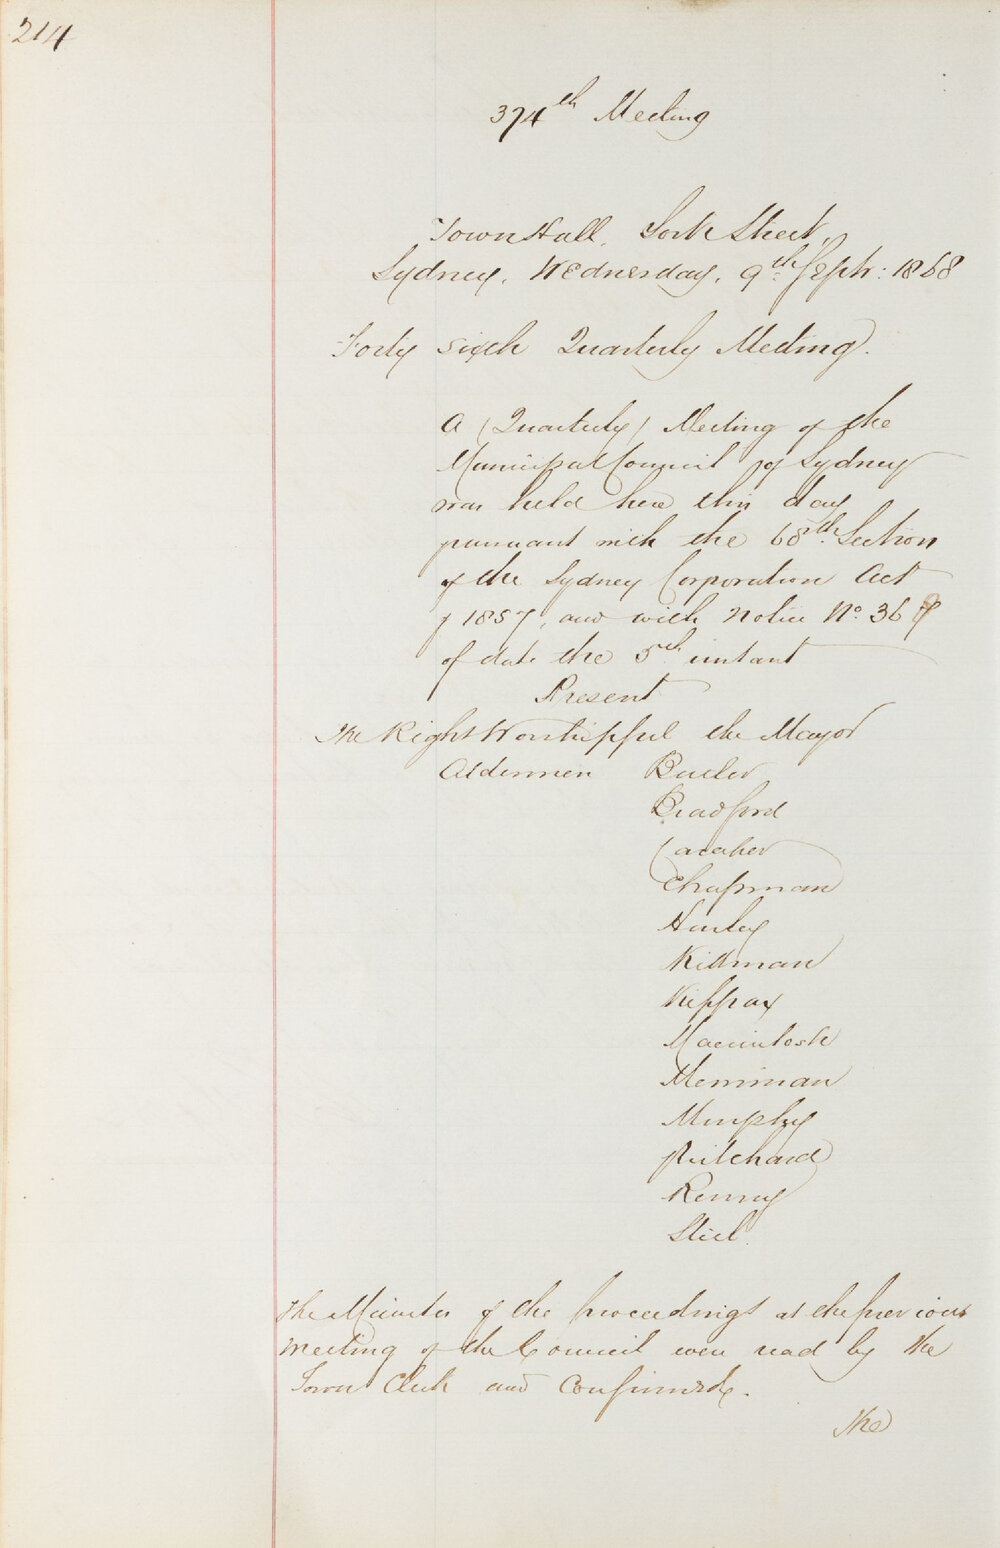 214
374th Meeting
Town Hall, York Street,
Sydney, Wednesday, 9th Septr: 1868
Forty sixth Quarterly Meeting.
A (Quarterly) Meeting of the
Municipal Council of Sydney
was held here this day
pursuant with the 68th Section
of the Sydney Corporation Act
of 1857, and with notice No. 369
of date the 5th instant
Present
The Right Worshipful the Mayor
Aldermen Butler
Bradford
Caraher
Chapman
Hurley
Kidman
Kippax
Macintosh
Merriman
Murphy
Pritchard
Renny
Steel
The Minutes of the proceedings at the previous
meeting of the Council were read by the
Town Clerk and Confirmed.
The